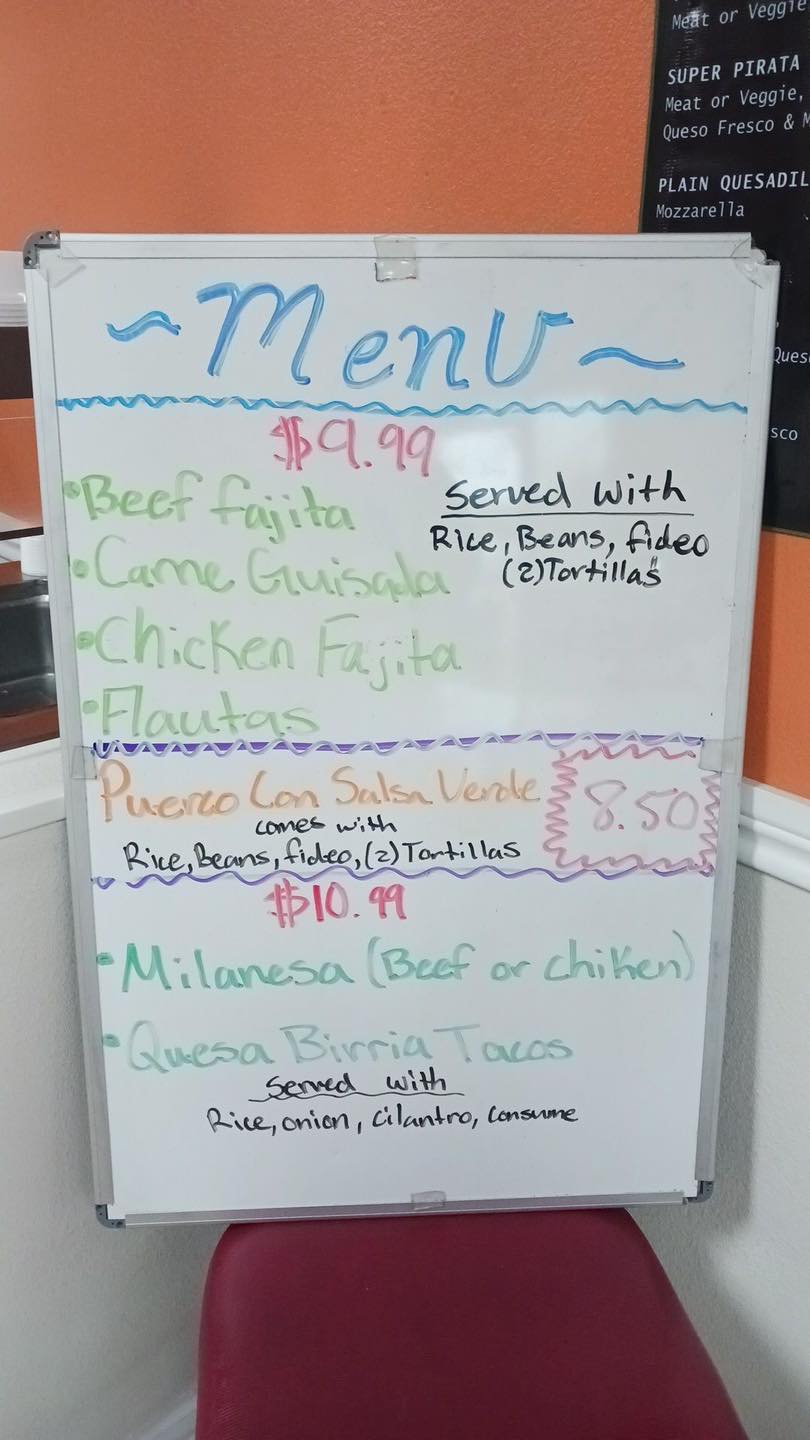 Meat or Veggie
SUPER PIRATA
Meat or Veggie,
Queso Fresco &
PLAIN QUESADIL
Mozzarella
Ques
sco
~Menu~
$9.99
•Beef fajita
•Carne Guisada
•Chicken Fajita
•Flautas
Served with
Rice, Beans, fideo
(2)Tortillas
Puerco Con Salsa Verde
8.50
comes with
Rice, Beans, fideo, (2) Tortillas
$10.99
•Milanesa (Beef or chiken)
•Quesa Birria Tacos
Served with
Rice, onion, cilantro, consume